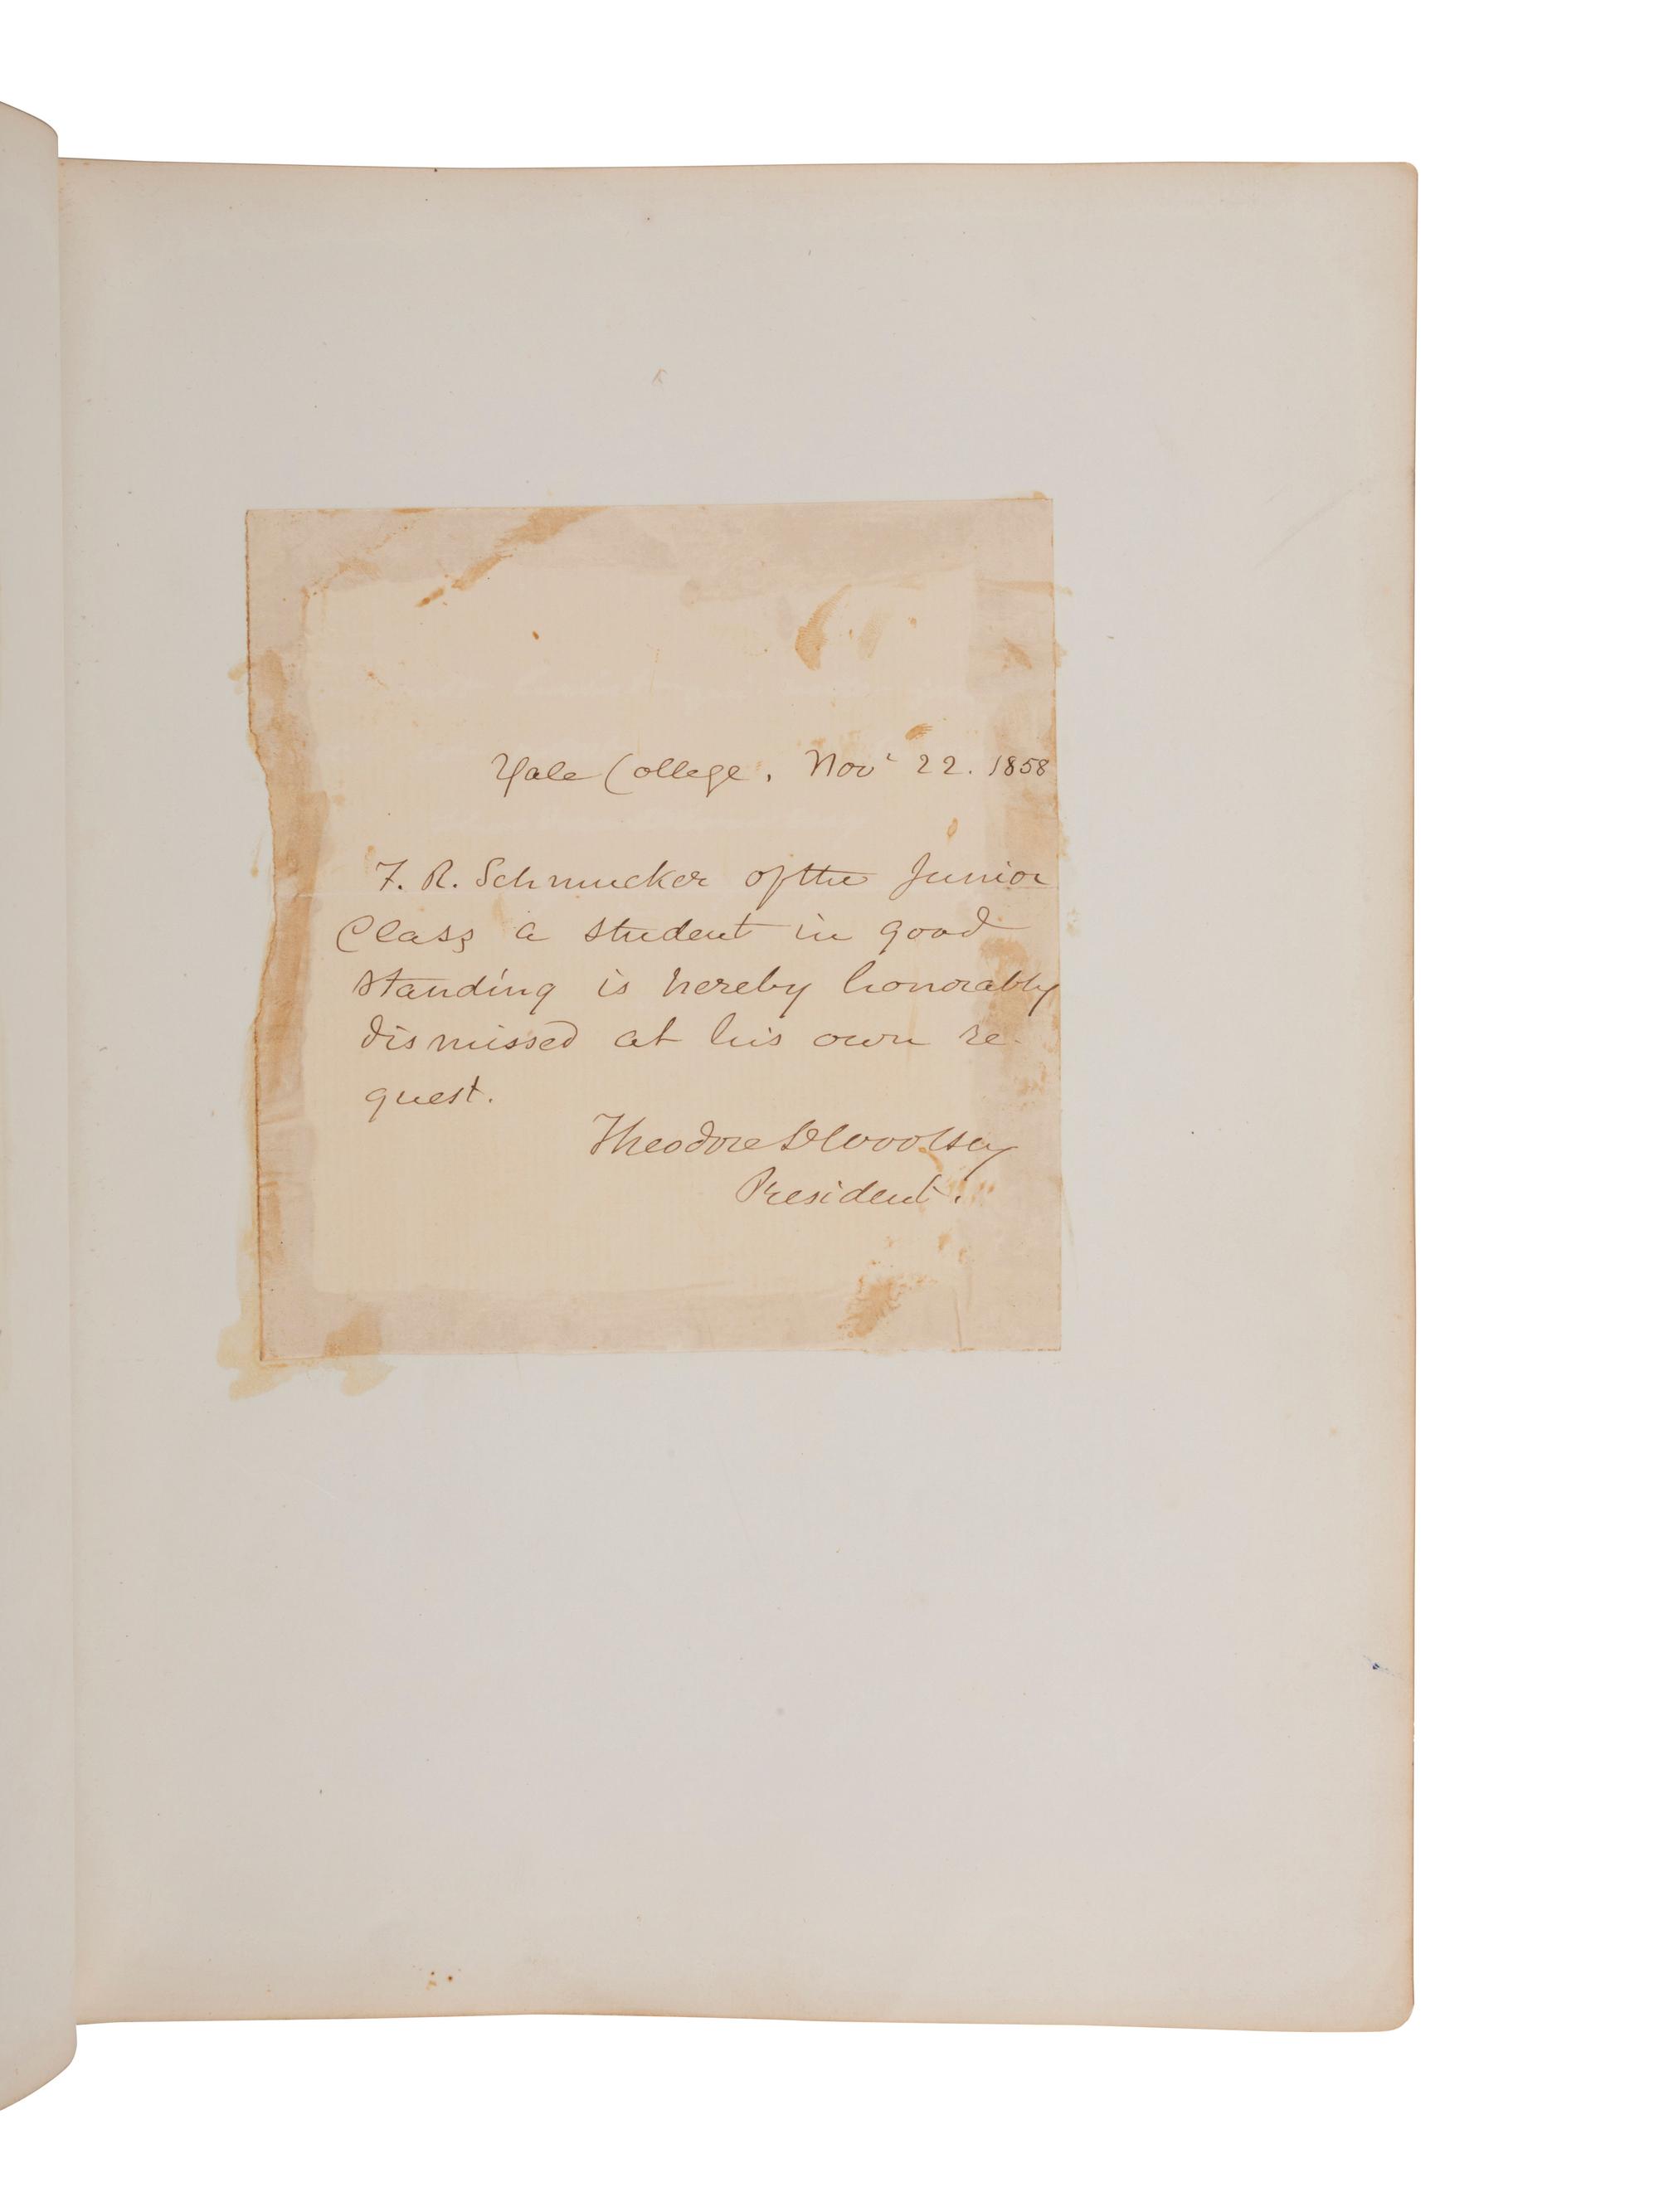 Yale College, Nov<sup>r</sup> 22. 1858
F. R. Schmucker of the Junior
Class a student in good
standing is hereby honorably
dismissed at his own re-
quest.
Theodore D Woolsey
President.